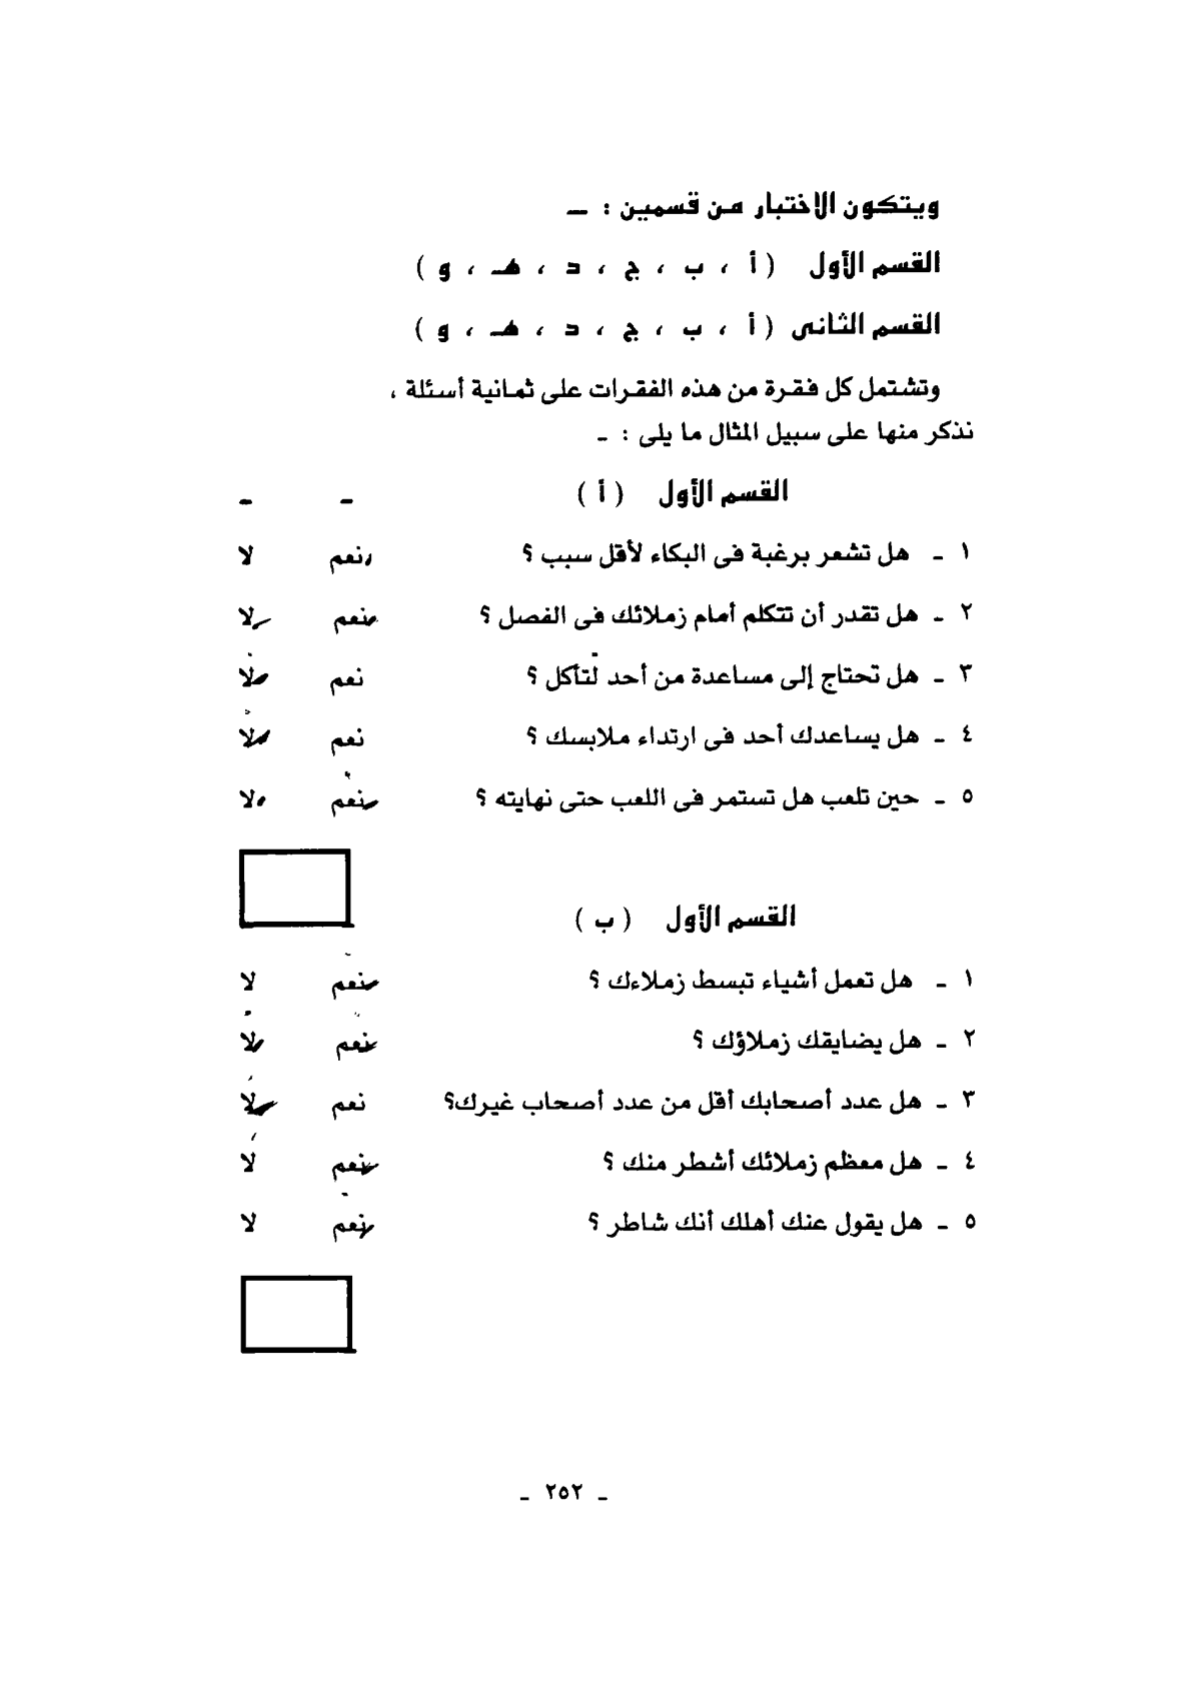 ويتكون الاختبار من قسمين : ــ
القسم الأول ( أ ، ب ، ج ، د ، هـ ، و )
القسم الثانى ( أ ، ب ، ج ، د ، هـ ، و )
وتشتمل كل فقرة من هذه الفقرات على ثمانية أسئلة ،
نذكر منها على سبيل المثال ما يلى : ـ
القسم الأول ( أ ) ـ ـ
١ ـ هل تشعر برغبة فى البكاء لأقل سبب ؟ نعم لا
٢ ـ هل تقدر أن تتكلم أمام زملائك فى الفصل ؟ نعم لا
٣ ـ هل تحتاج إلى مساعدة من أحد لتأكل ؟ نعم لا
٤ ـ هل يساعدك أحد فى ارتداء ملابسك ؟ نعم لا
٥ ـ حين تلعب هل تستمر فى اللعب حتى نهايته ؟ نعم لا
القسم الأول ( ب )
١ ـ هل تعمل أشياء تبسط زملاءك ؟ نعم لا
٢ ـ هل يضايقك زملاؤك ؟ نعم لا
٣ ـ هل عدد أصحابك أقل من عدد أصحاب غيرك؟ نعم لا
٤ ـ هل معظم زملائك أشطر منك ؟ نعم لا
٥ ـ هل يقول عنك أهلك أنك شاطر ؟ نعم لا
ـ ٢٥٢ ـ